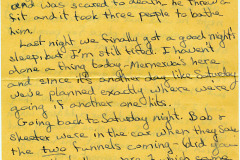 and was scared to death he threw a
fit and it took three people to bathe
him.
Last night we finally got a good night
sleep but I'm still tired. I haven't
done a thing today - Mernerva's here
and since it's another day like Saturday
we've planned exactly where were
going if another one hits.
Going back to Saturday night. Bob &
Skeeter were in the car when they saw
the two funnels coming. Did you